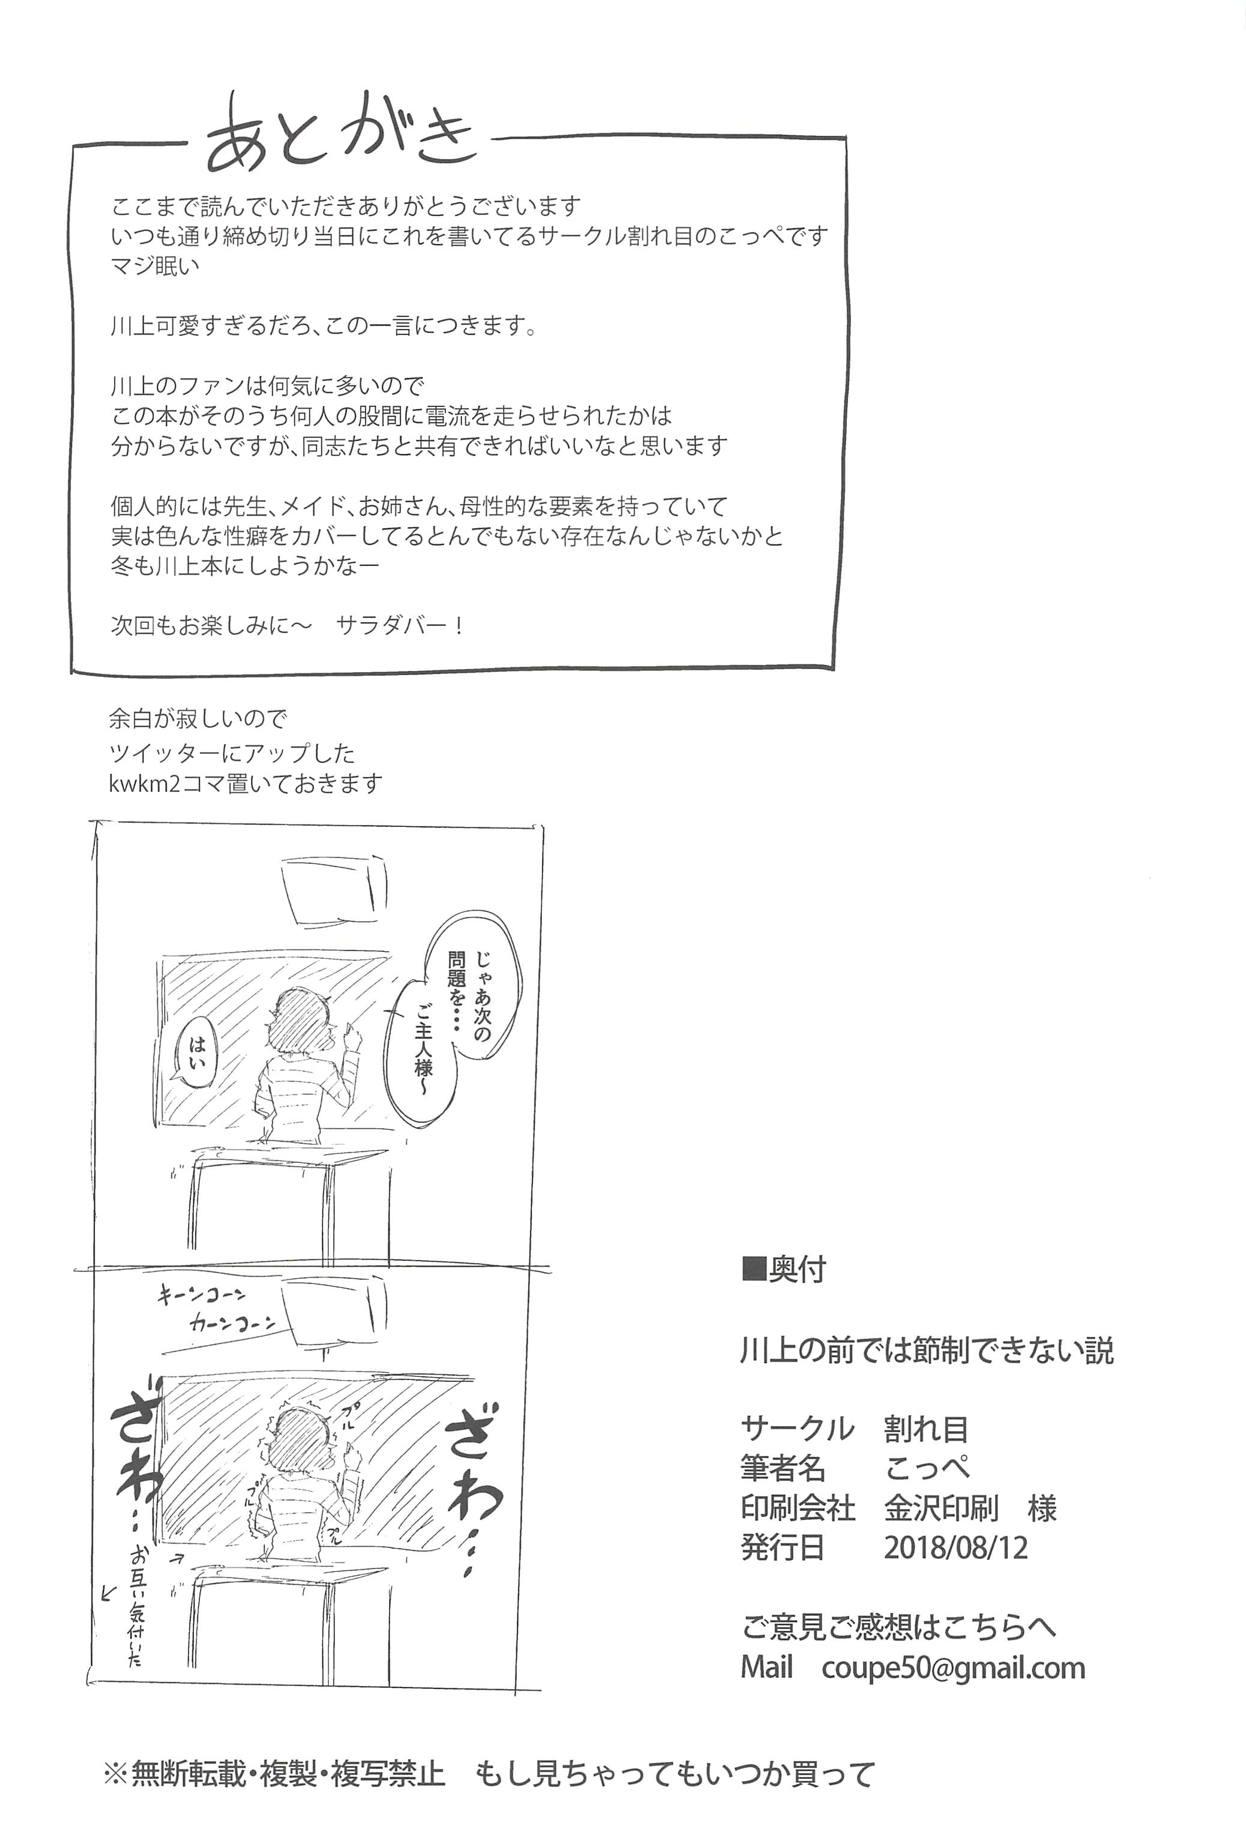 あとがき
ここまで読んでいただきありがとうございます
いつも通り締め切り当日にこれを書いてるサークル割れ目のこっぺです
マジ眠い
川上可愛すぎるだろ、この一言につきます。
川上のファンは何気に多いので
この本がそのうち何人の股間に電流を走らせられたかは
分からないですが、同志たちと共有できればいいなと思います
個人的には先生、メイド、お姉さん、母性的な要素を持っていて
実は色んな性癖をカバーしてるとんでもない存在なんじゃないかと
冬も川上本にしようかなー
次回もお楽しみに～　サラダバー！
余白が寂しいので
ツイッターにアップした
kwkm2コマ置いておきます
じゃあ次の
問題を・・・
ご主人様～
はい
キーンコーン
カーンコーン
ざわ・・・
ざわ・・・
プル
プル
プル
お互い気付いた
■奥付
川上の前では節制できない説
サークル　割れ目
筆者名　　こっぺ
印刷会社　金沢印刷　様
発行日　　2018/08/12
ご意見ご感想はこちらへ
Mail　coupe50@gmail.com
※無断転載・複製・複写禁止　もし見ちゃってもいつか買って